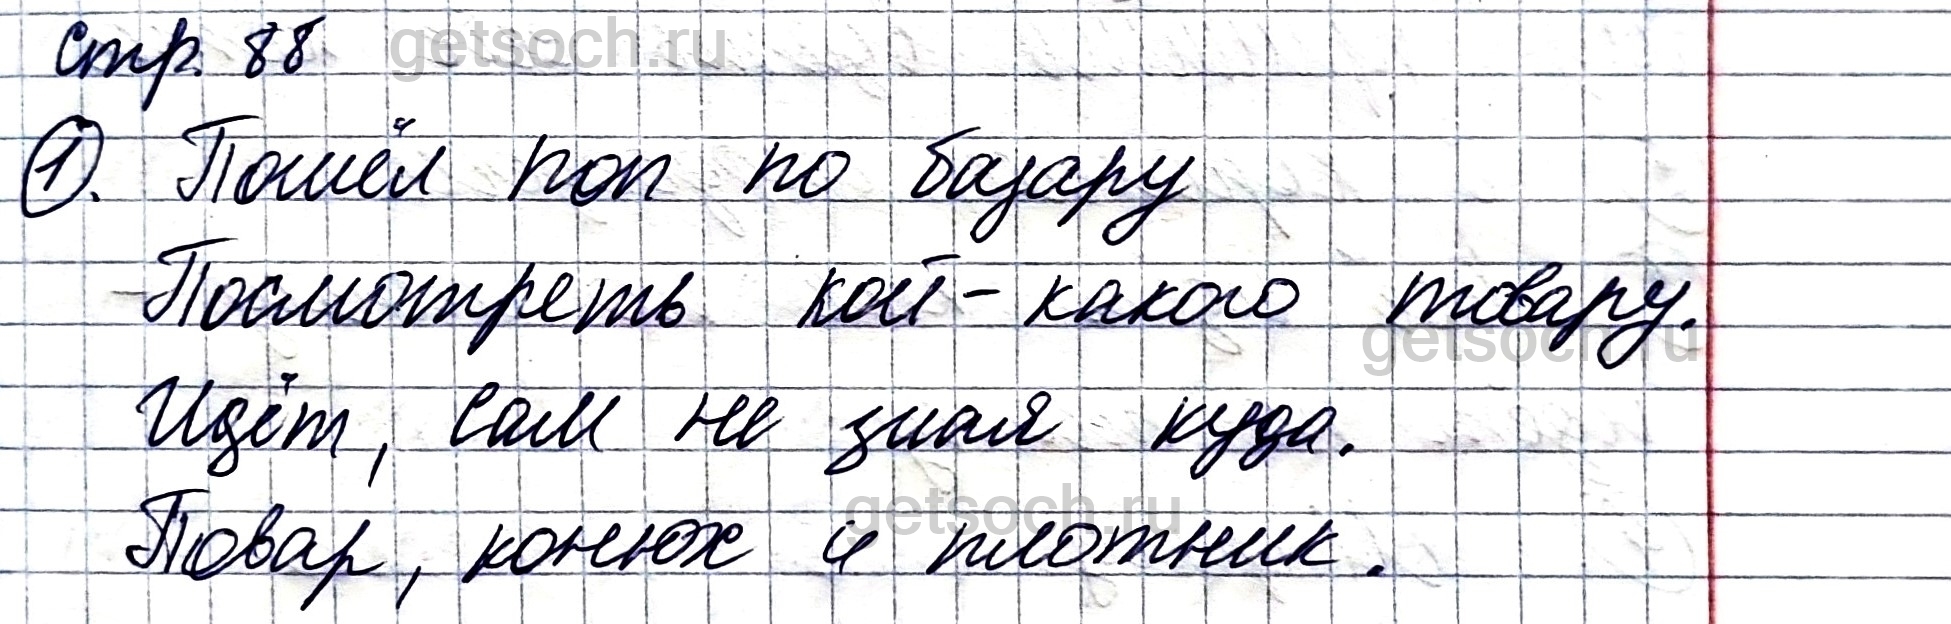 стр. 88 getsoch.ru
1. Пошёл поп по базару
Посмотреть кой-какого товару.
getsoch.ru
Идёт, сам не зная куда.
getsoch.ru
Повар, конюх и плотник.